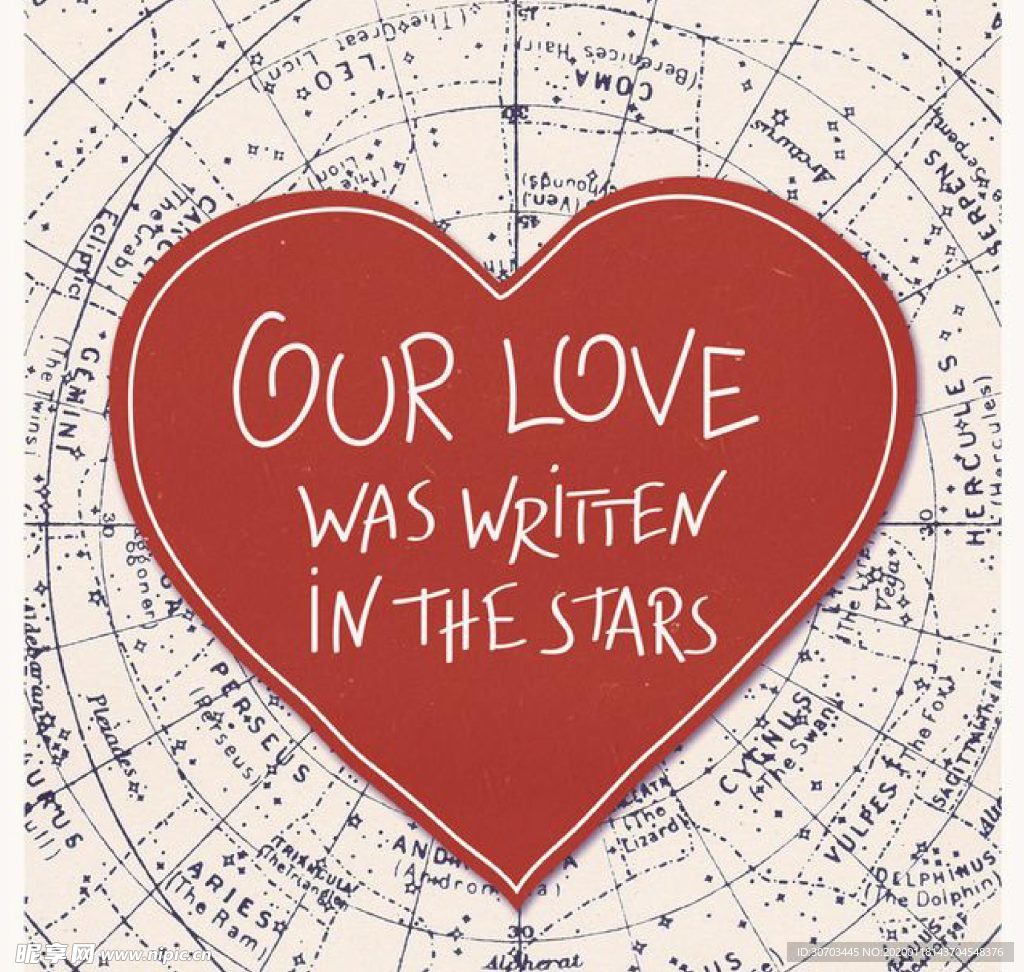 15
(The Great
Lion)
LEO
(Berenices Hair)
COMA
30
Arcturus
SERPENS
45
(The
Crab)
Ecliptic
GEMINI
(The Twins)
HERCULES
(Hercules)
OUR LOVE
WAS WRITTEN
IN THE STARS
30
30
Vega
Aldebaran
Pleiades
PERSEUS
(Perseus)
CYGNUS
(The Swan)
VULPES
(The Fox)
SAGITTA
(The
Lizard)
ARIES
(The Ram)
TRIANGULA
(The Triangles)
DELPHINUS
(The Dolphin)
30
Alpherat
昵享网 www.nipic.cn
ID:30703445 NO:20200118143704548376